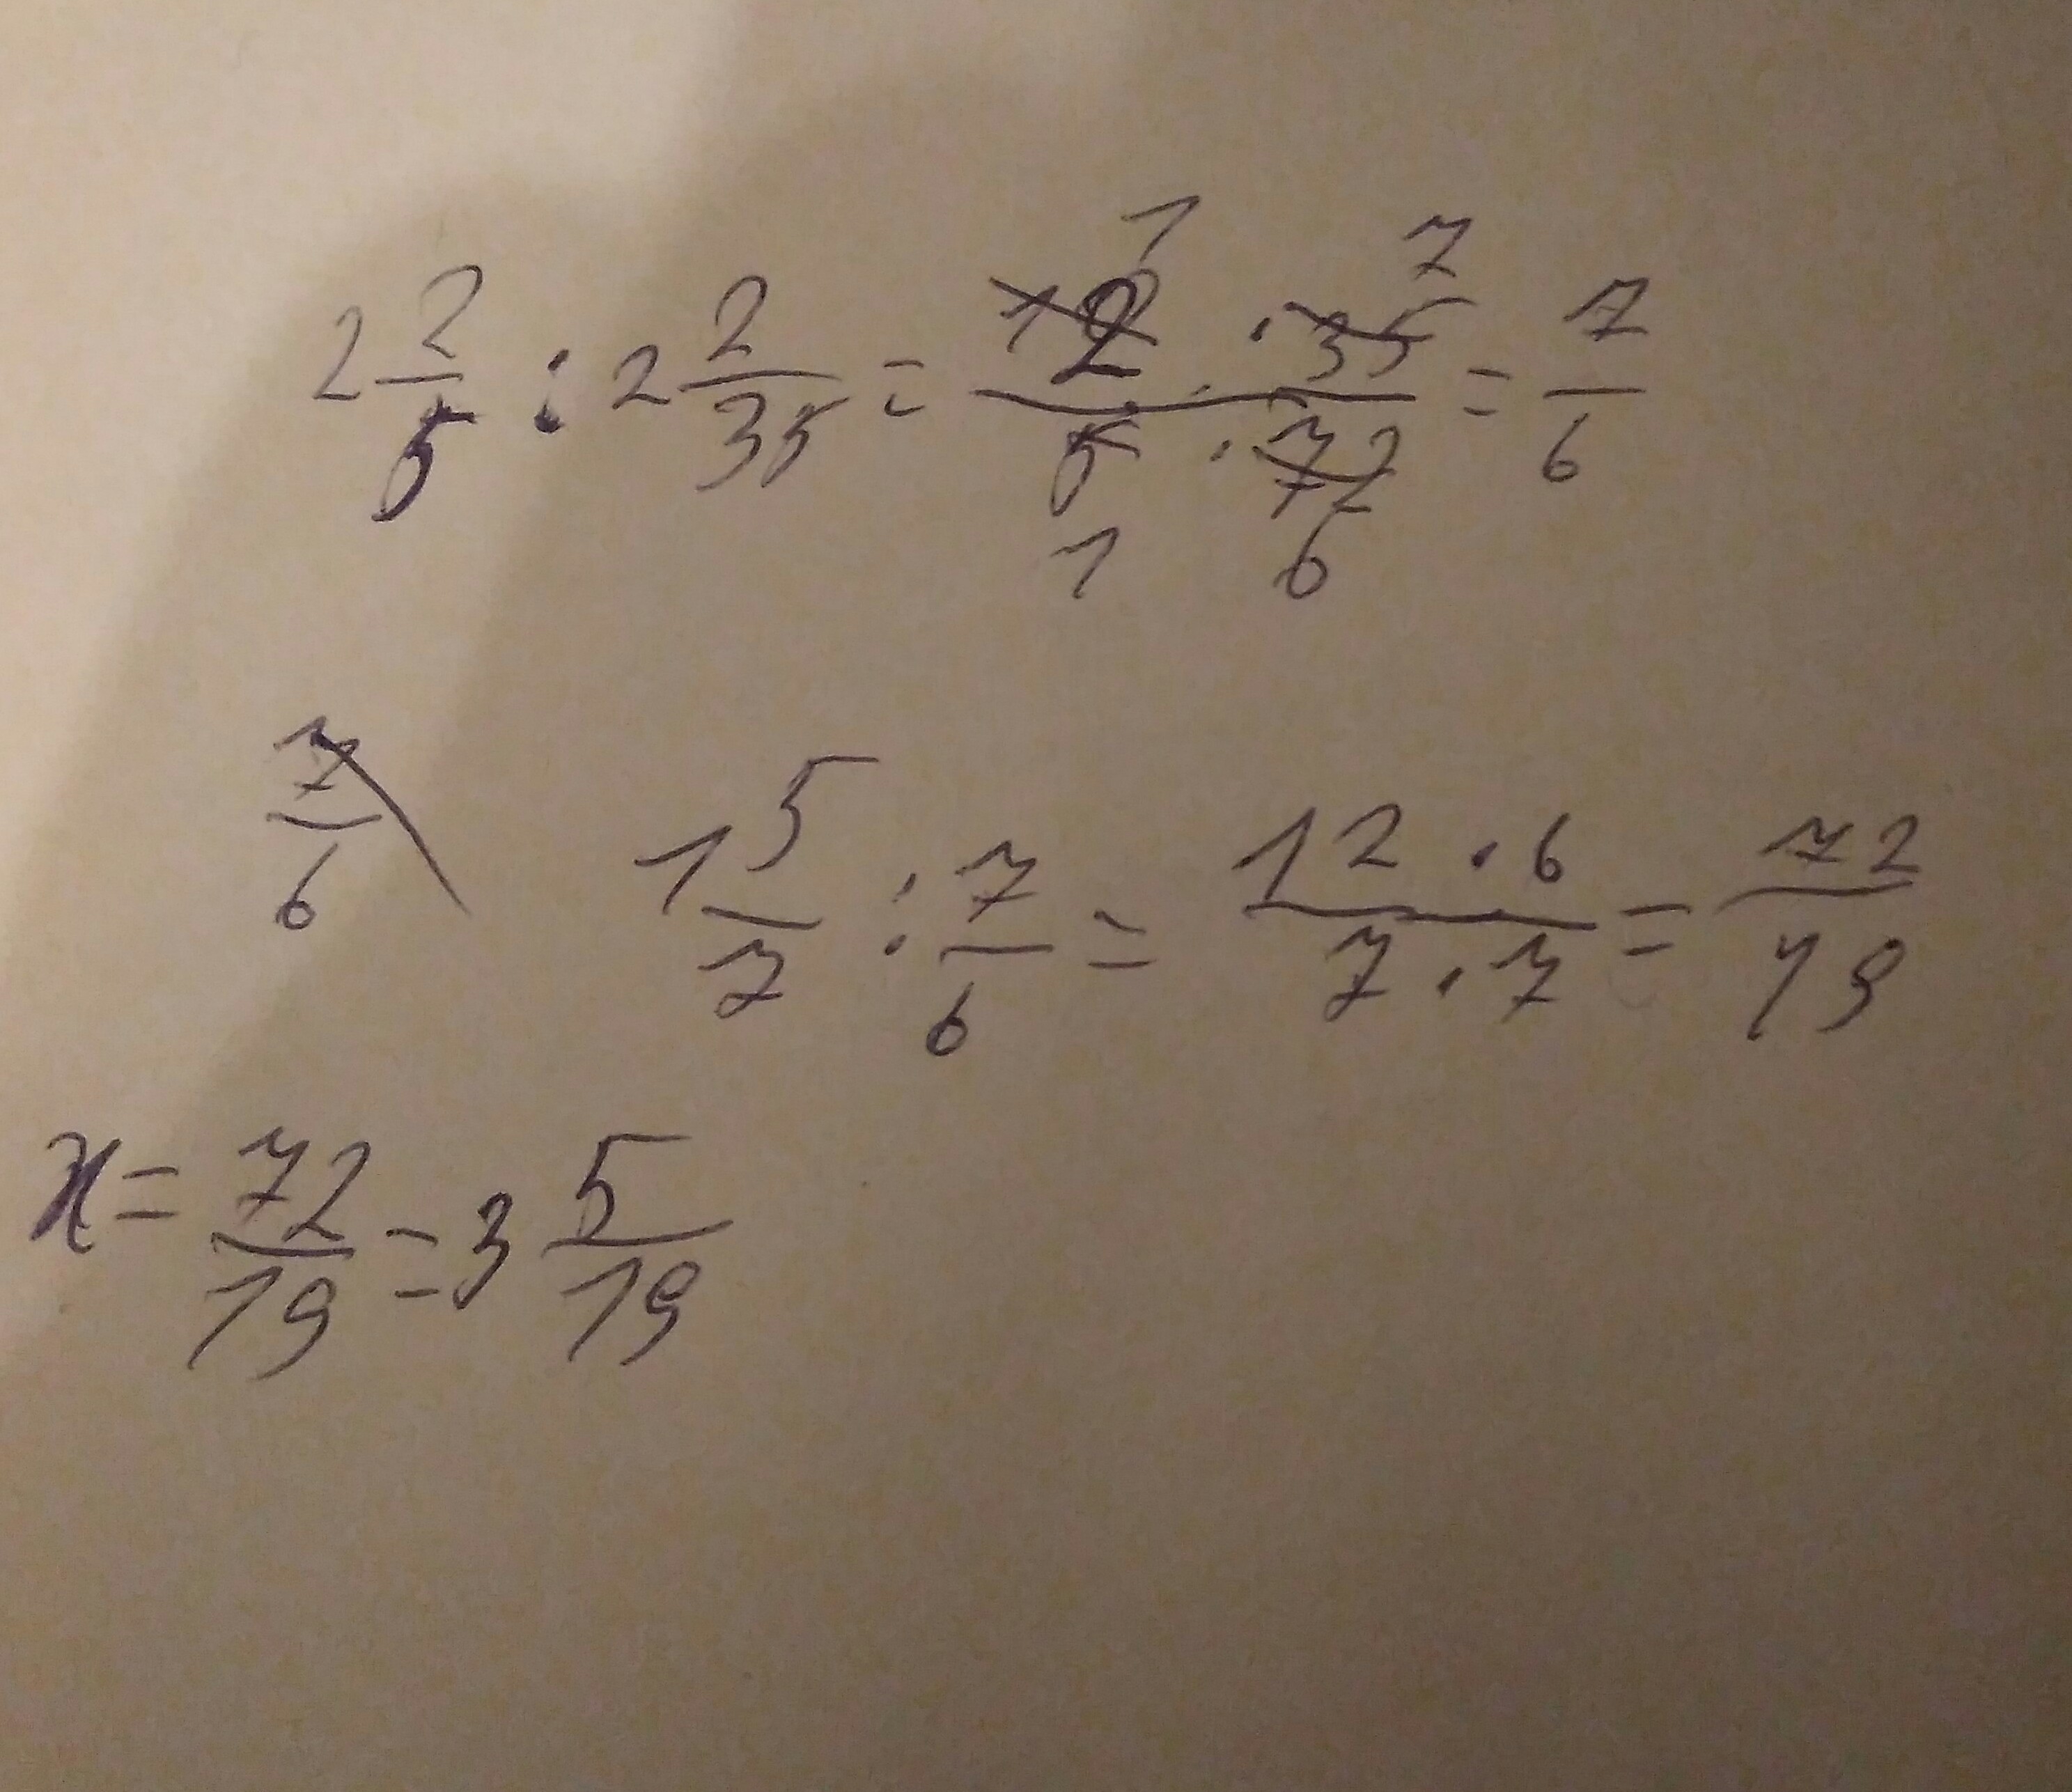 2 2/5 : 2 2/35 = 12 · 35 / 5 · 72 = 7/6
1 7
1 6
7/6 1 5/7 : 7/6 = 12 · 6 / 7 · 7 = 72/19
x = 72/19 = 3 5/19